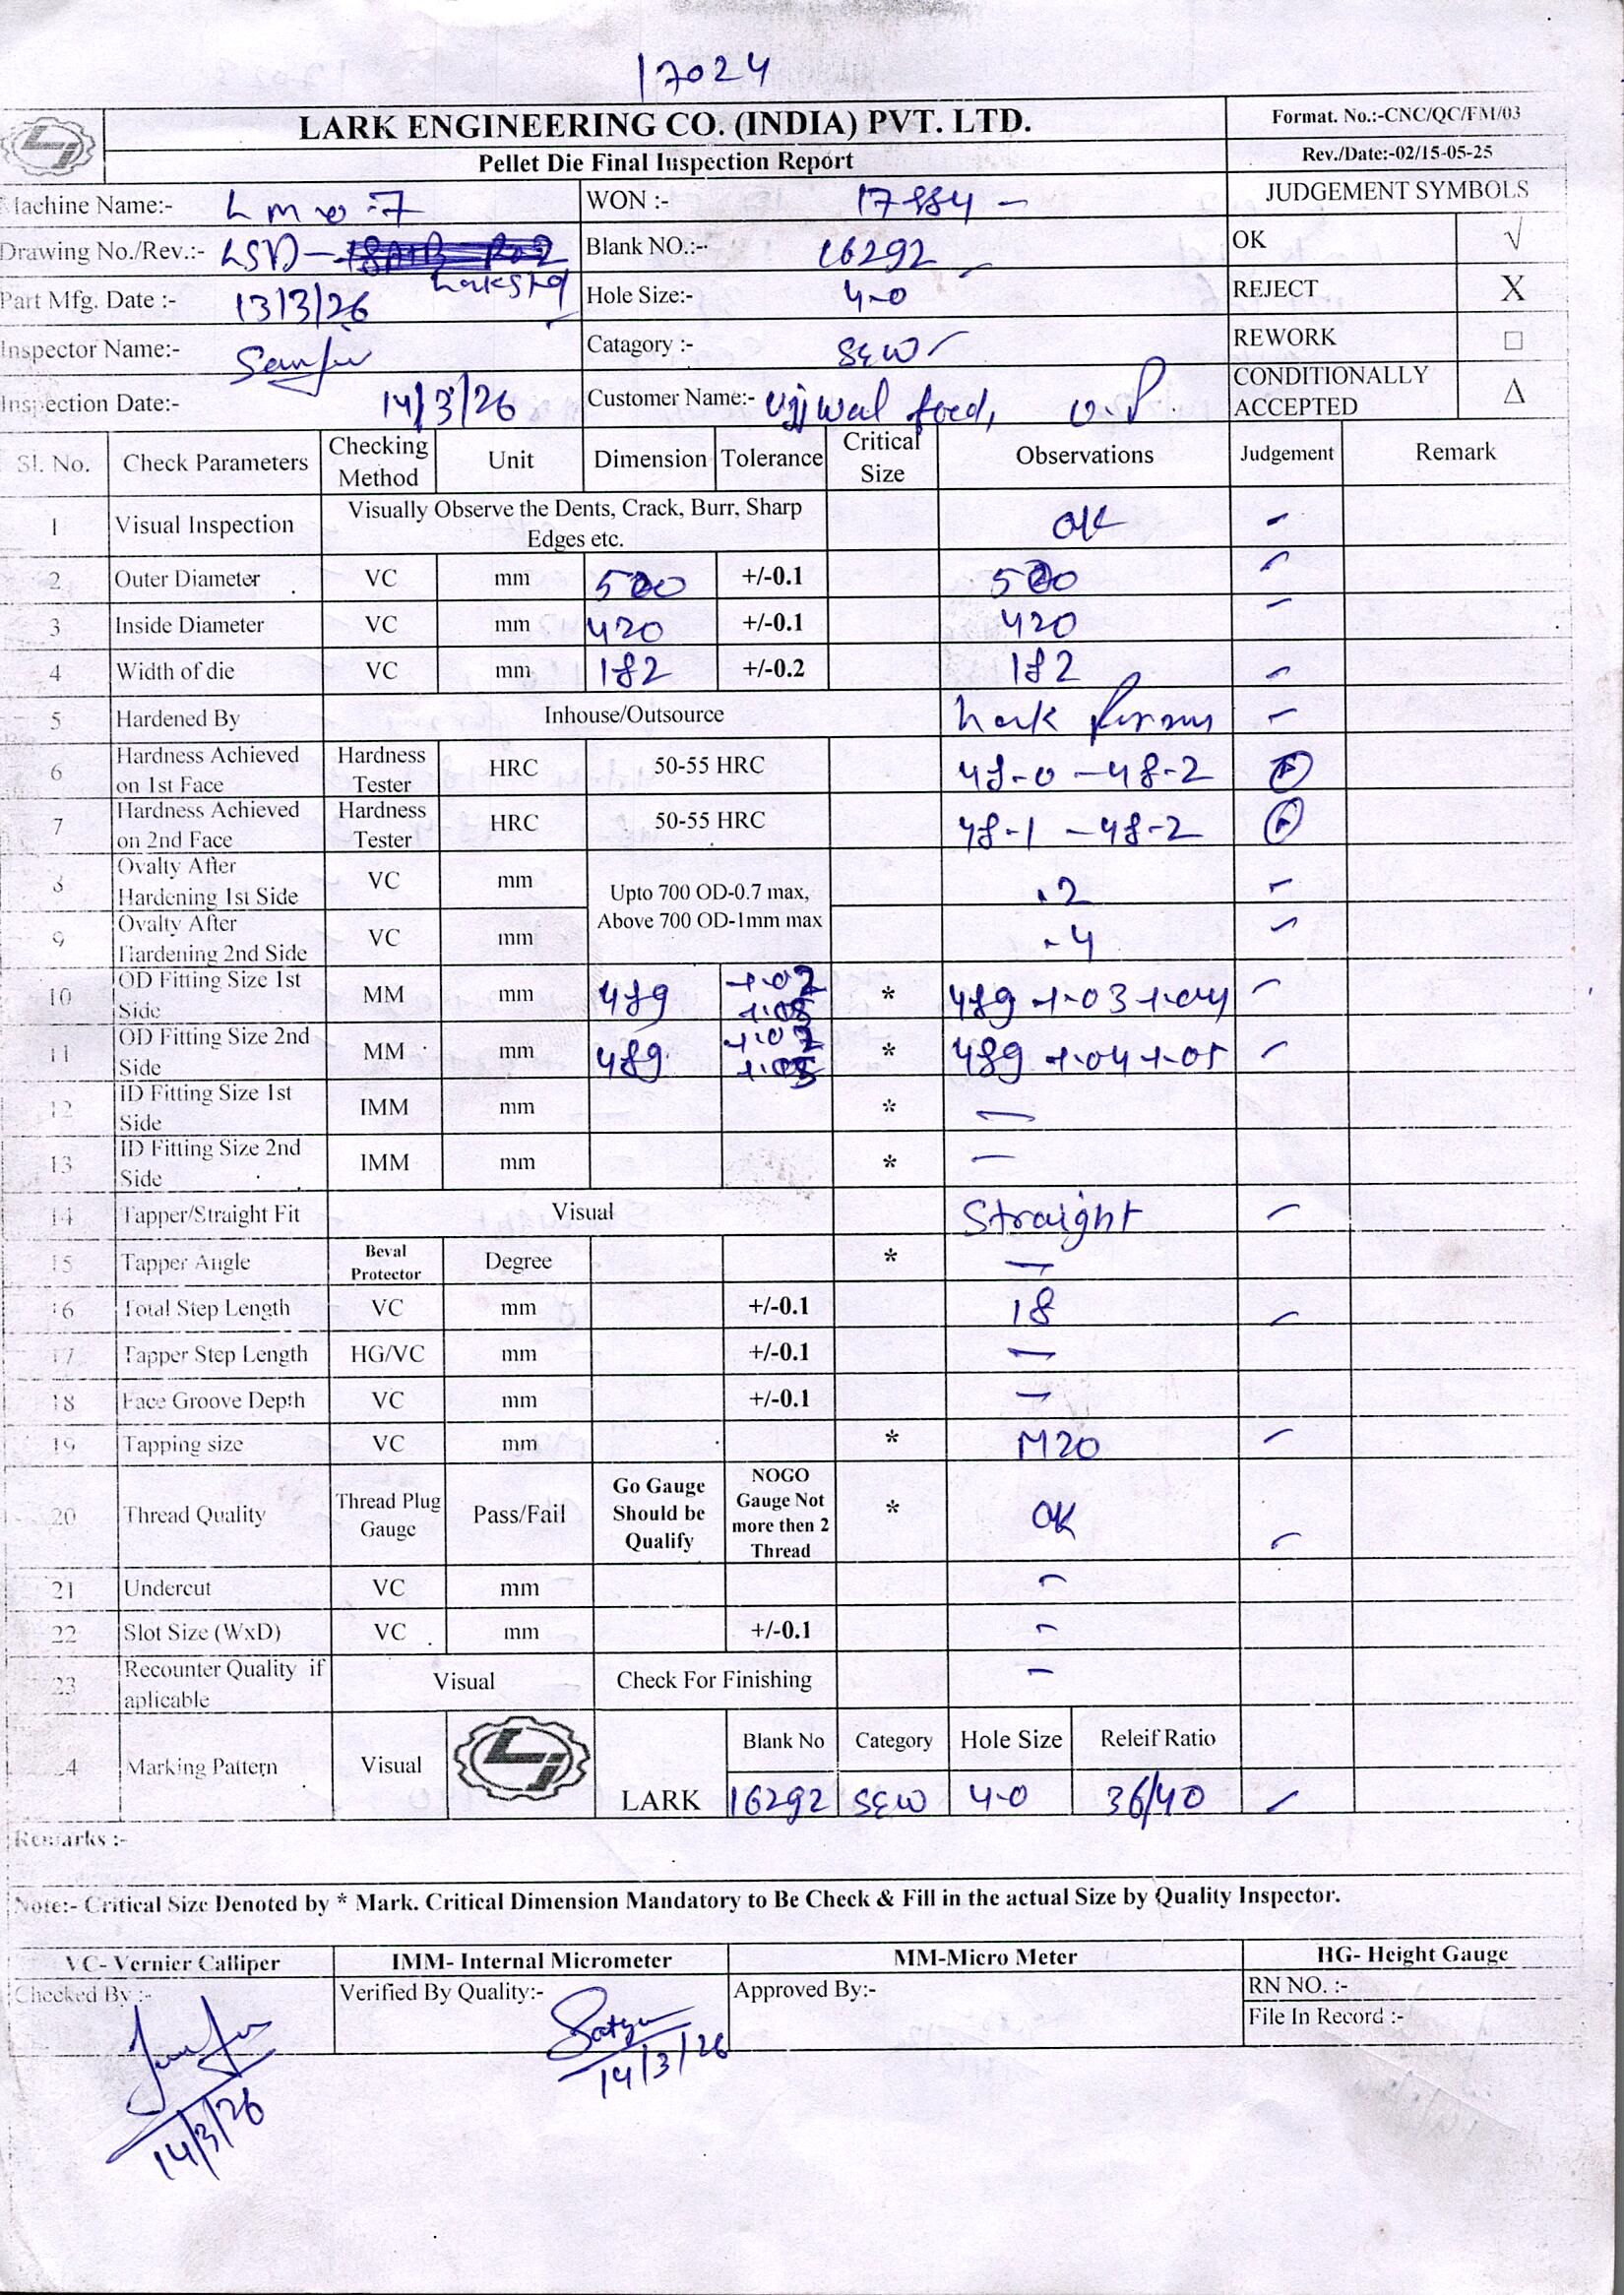 17024
LARK ENGINEERING CO. (INDIA) PVT. LTD. Format. No.:-CNC/QC/FM/03
Pellet Die Final Inspection Report Rev./Date:-02/15-05-25
Machine Name:- WON :- JUDGEMENT SYMBOLS
Drawing No./Rev.:- LSD- Blank NO.:- 16292 OK √
Part Mfg. Date :- 13/3/26 Hole Size:- 4-0 REJECT X
Inspector Name:- Catagory :- SEW REWORK □
Inspection Date:- 14/3/26 Customer Name:- Ujjwal feed, U.P. CONDITIONALLY ACCEPTED Δ
Sl. No. Check Parameters Checking Method Unit Dimension Tolerance Critical Size Observations Judgement Remark
1 Visual Inspection Visually Observe the Dents, Crack, Burr, Sharp Edges etc. OK
2 Outer Diameter VC mm +/-0.1
3 Inside Diameter VC mm 420 +/-0.1 420
4 Width of die VC mm 182 +/-0.2 182
5 Hardened By Inhouse/Outsource Lark
6 Hardness Achieved on 1st Face Hardness Tester HRC 50-55 HRC 48-0 - 48-2
7 Hardness Achieved on 2nd Face Hardness Tester HRC 50-55 HRC 48-1 - 48-2
8 Ovalty After Hardening 1st Side VC mm Upto 700 OD-0.7 max, Above 700 OD-1mm max .2
9 Ovalty After Hardening 2nd Side VC mm .4
10 OD Fitting Size 1st Side MM mm 489 * 489 +.03 +.04
11 OD Fitting Size 2nd Side MM mm 489 * 489 +.04 +.05
12 ID Fitting Size 1st Side IMM mm * —
13 ID Fitting Size 2nd Side IMM mm * —
14 Tapper/Straight Fit Visual Straight
15 Tapper Angle Beval Protector Degree * —
16 Total Step Length VC mm +/-0.1 18
17 Tapper Step Length HG/VC mm +/-0.1 —
18 Face Groove Depth VC mm +/-0.1 —
19 Tapping size VC mm * M20
20 Thread Quality Thread Plug Gauge Pass/Fail Go Gauge Should be Qualify NOGO Gauge Not more then 2 Thread * OK
21 Undercut VC mm —
22 Slot Size (WxD) VC mm +/-0.1 —
23 Recounter Quality if aplicable Visual Check For Finishing —
24 Marking Pattern Visual LARK Blank No Category Hole Size Releif Ratio
16292 SEW 4-0 36/40
Remarks :-
Note:- Critical Size Denoted by * Mark. Critical Dimension Mandatory to Be Check & Fill in the actual Size by Quality Inspector.
VC- Vernier Calliper IMM- Internal Micrometer MM-Micro Meter HG- Height Gauge
Checked By :- Verified By Quality:- Approved By:- RN NO. :-
File In Record :-
14/3/26
14/3/26